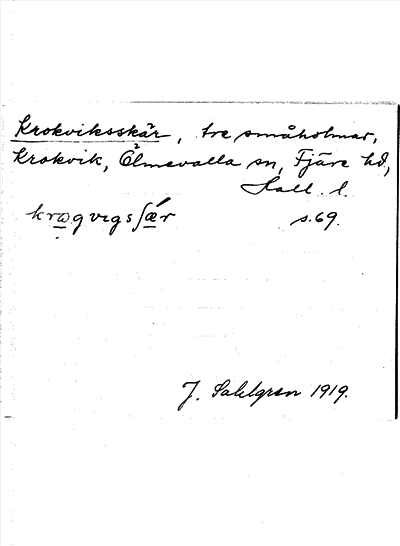 Krokviksskär, tre småholmar,
Krokvik, Ölmevalla sn, Fjäre hd,
Hall. l.
s. 69.
J. Sahlgren 1919.